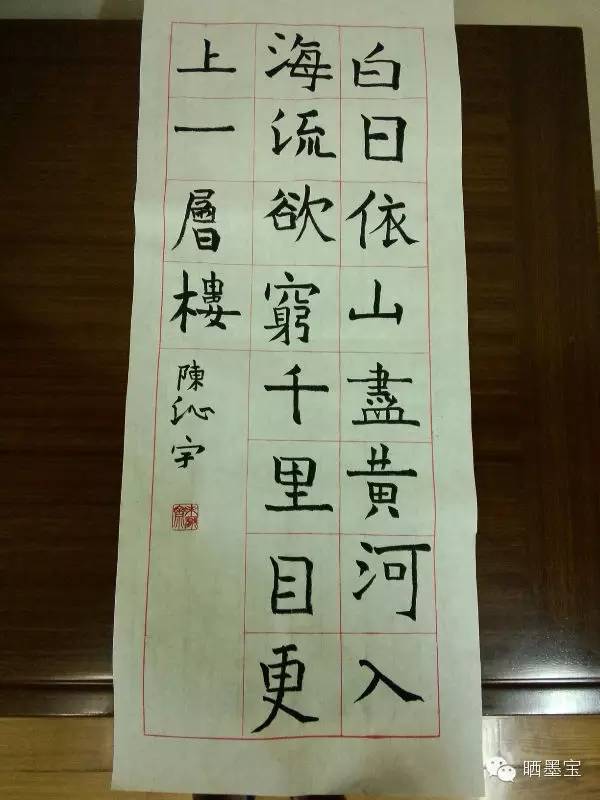 白日依山盡黄河入
海流欲窮千里目更
上一層樓
陳沁宇
晒墨宝